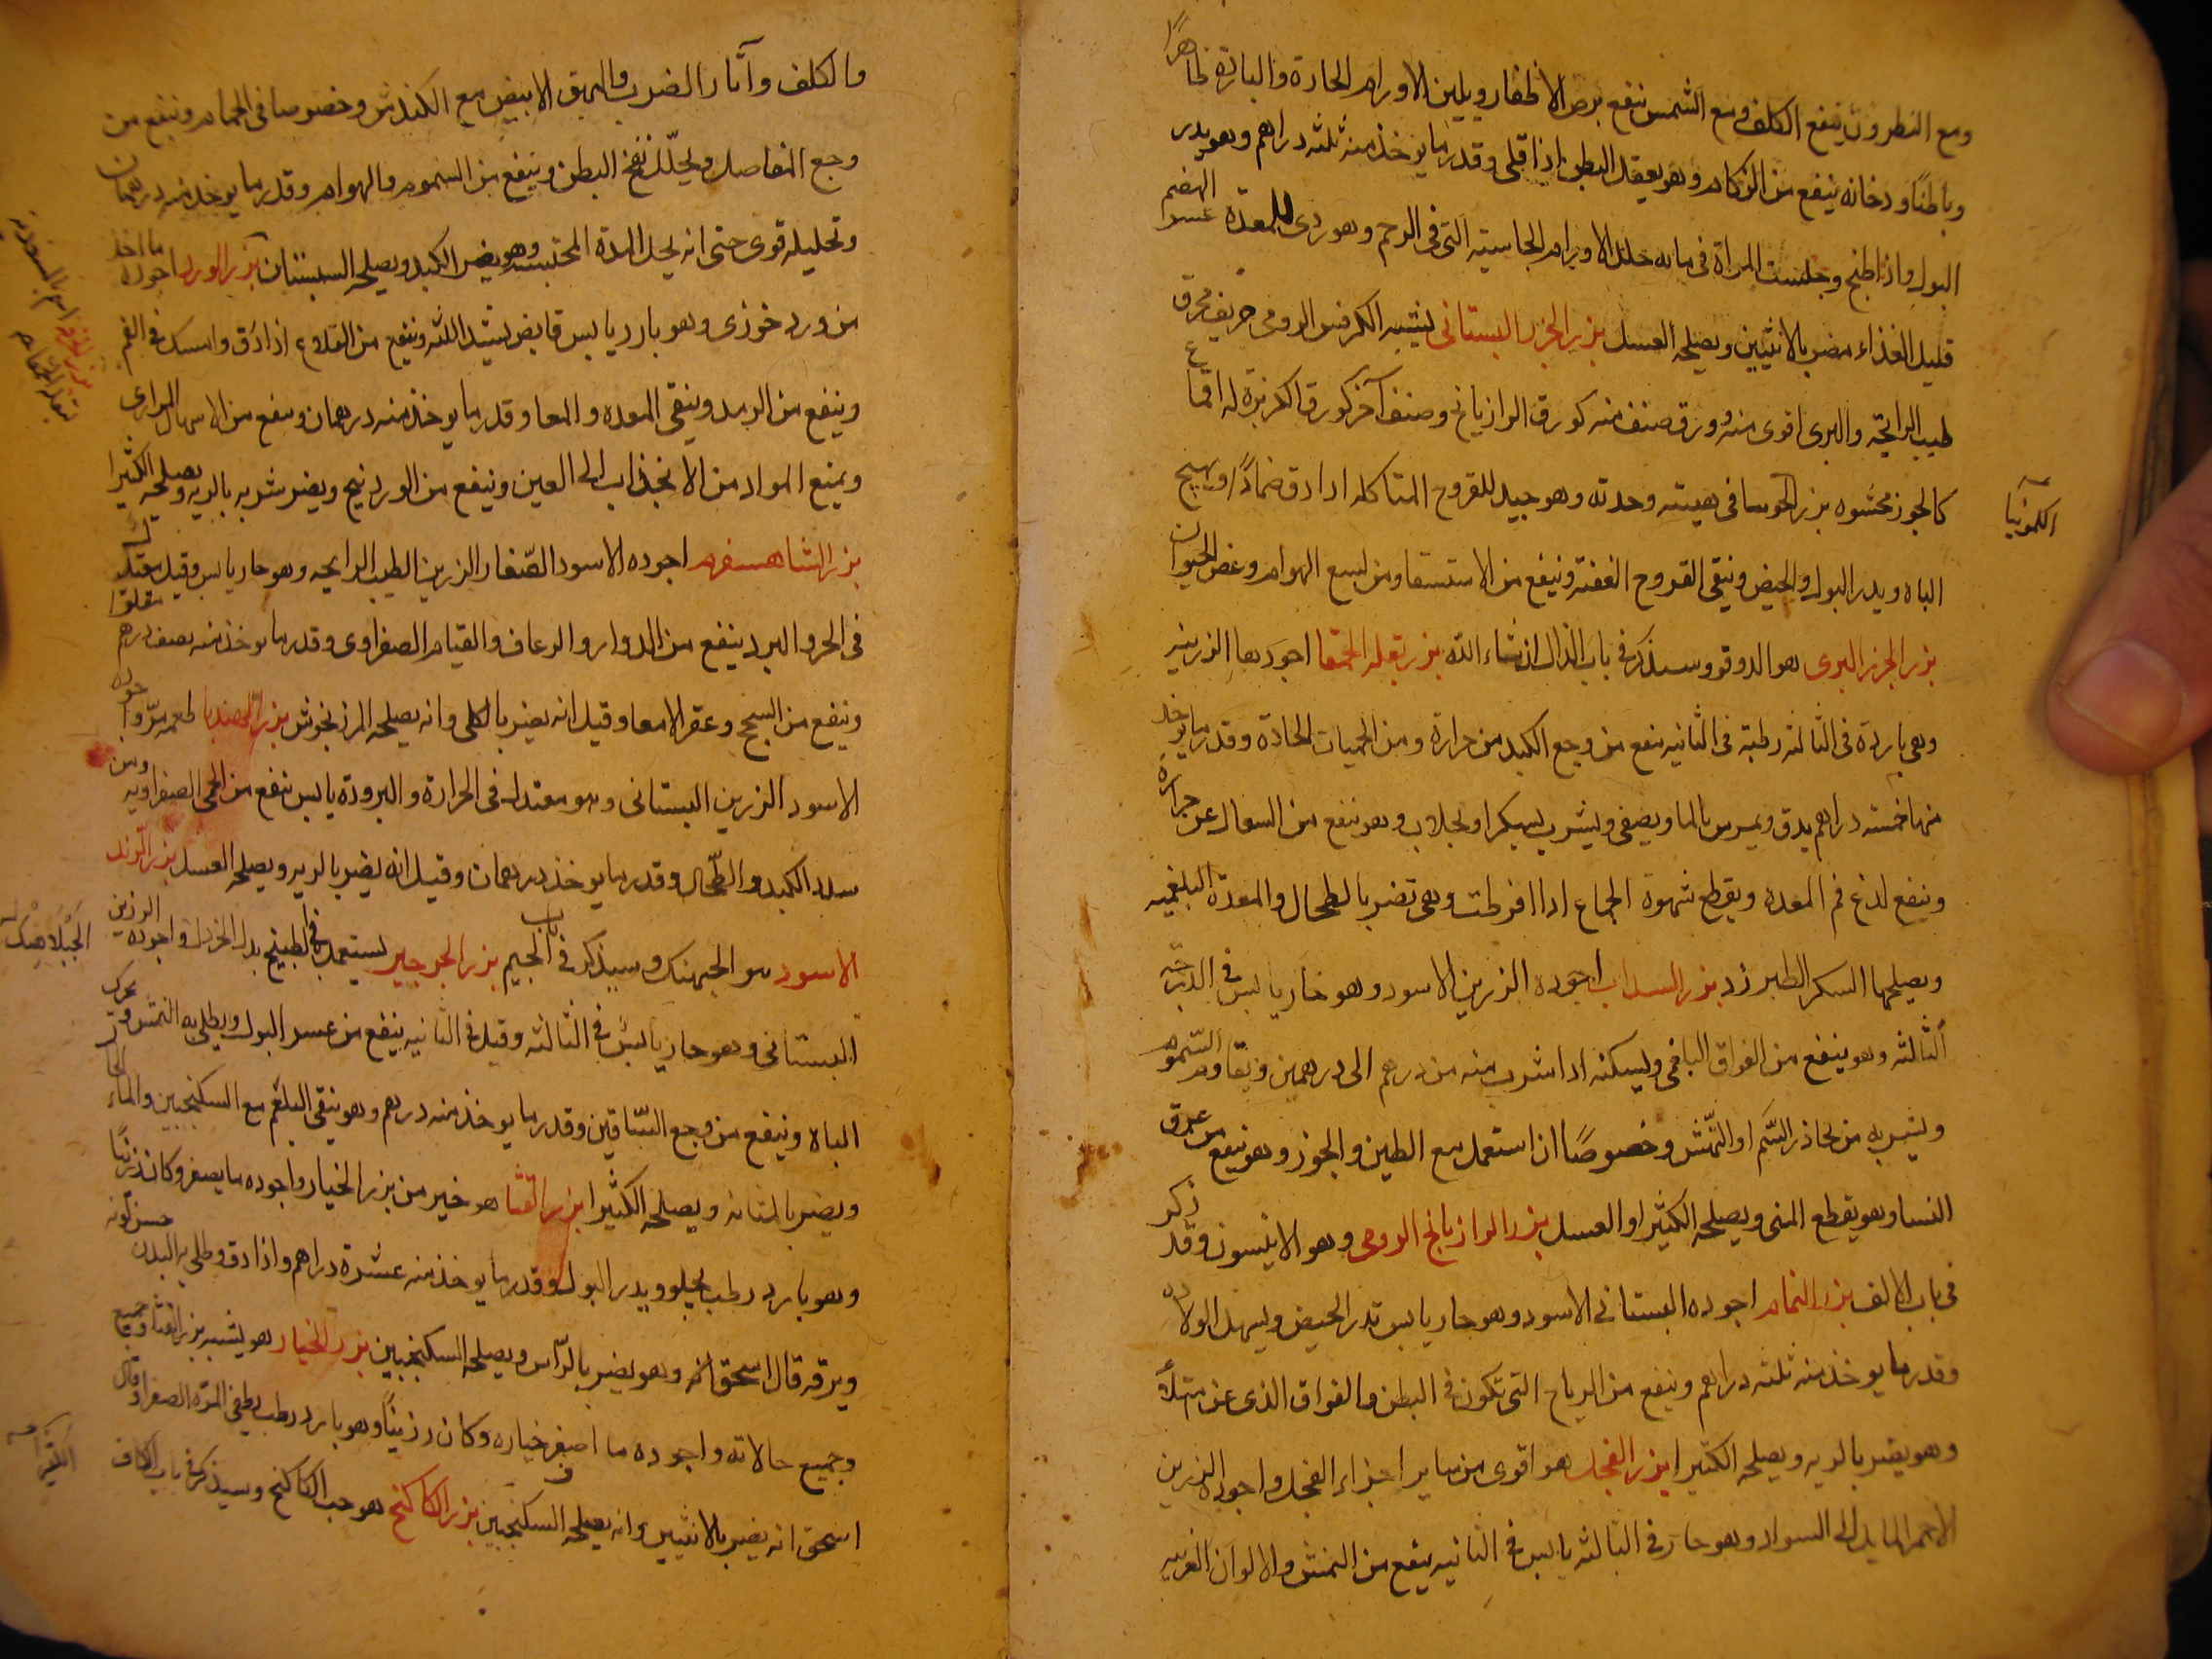 ومع النطرون ينفع الكلف ومع الشمس ينفع برص الاظفار ويلين الاورام الحارة والباردة ظاهرًا
وباطنًا ودخانه ينفع من الزكام وهو يعقل البطن اذا قلى وقدر ما يوخذ منه ثلثه دراهم وهو يدر
البول واذا طبخ وجلست المراة فى مايه حلل الاورام الجاسيته التى فى الرحم وهو ردى للمعدة عسر الهضم
قليل الغذاء مضر بالانثيين ويصلحه العسل بزر الجزر البستانى يشبه الكرفس الرومى حريف محرق
طيب الرايحة والبرى اقوى منه وورق صنف منه كورق الرازيانج وصنف آخر كورق الكزبرة له اقماع
كالجوز محشوه بزر كموسا فى هيئته وحدته وهو جيد للقروح المتاكله اذا دق ضمادًا ويهيج
الكمونيا
الباه ويدر البول والحيض وينقى القروح العفنة وينفع من الاستسقا ومن لسع الهوام وعض الحيوان
بزر الجزر البرى هو الدوقو وسيذكر فى باب الدال ان شاء الله بزر بقلة الحمقا اجودها الرزينه
وهى باردة فى الثالثه رطبة فى الثانيه ينفع من وجع الكبد من حرارة ومن الحميات الحادة وقدر ما يوخذ
منها خمسة دراهم يدق ويمرس بالما ويصفى ويشرب بسكر او بجلاب وهو ينفع من السعال عن حرارة
وينفع لدغ فم المعده ويقطع شهوة الجماع اذا افرطت وهى تضر بالطحال والمعدة البلغميه
ويصلحها السكر الطبرزد بزر السداب اجوده الرزين الاسود وهو حار يابس فى الدرجة
الثالثه وهو ينفع من الفواق البلغمى ويسكنه اذا شرب منه من درهم الى درهمين ويقاوم السموم
ويشربه من يحاذر السم او النمش وخصوصًا ان استعمل مع الطين والجوز وهو ينفع من عرق
النسا وهو يقطع المنى ويصلحه الكثيرا والعسل بزر الرازيانج الرومى وهو الانيسون وقد ذكر
فى باب الالف بزر النمام اجوده البستانى الاسود وهو حار يابس يدر الحيض ويسهل الولاده
وقدر ما يوخذ منه ثلثه دراهم وينفع من الرياح التى تكون فى البطن والفواق الذى عن امتلاء
وهو يضر بالريه ويصلحه الكثيرا بزر الفجل هو اقوى من ساير اجزاء الفجل واجوده الرزين
الاحمر المايل الى السواد وهو حار فى الثالثه يابس فى الثانيه ينفع من النمش والالوان الغريبه
والكلف وآثار الضرب والبهق الابيض مع الكندش وخصوصا فى الحمام وينفع من
وجع المفاصل ويحلّل نفخ البطن وينفع من السموم والهوام وقدر ما يوخذ منه درهمان
وتحليله قوى حتى انه يحل المدة المحتبسه وهو يضر الكبد ويصلحه السبستان بزر الورد اجوده ما اخذ
من ورد خوزى وهو بارد يابس قابض يشد اللثه وينفع من القلاع اذا دق وامسك فى الفم
وينفع من الرمد وينقى المعده والمعا وقدر ما يوخذ منه درهمان وينفع من الاسهال المرارى
ويمنع المواد من الانجذاب الى العين وينفع من الوردينج ويضر شربه بالريه ويصلحه الكثيرا
بزر الشاهسفرم اجوده الاسود الصّغار الرزين الطيب الرايحه وهو حار يابس وقيل معتدل
فى الحر والبرد ينفع من الدوار والرعاف والقيام الصفراوى وقدر ما يوخذ منه نصف درهم مقلوا
وينفع من السحج وعقر الامعا وقيل انه يضر بالكلى وانه يصلحه المرزنجوش بزر الهندبا طعمه مرّ واجوده
الاسود الرزين البستانى وهو معتدل فى الحرارة والبرودة يابس ينفع من الحمى الصفراويه ومن
سدد الكبد والطّحال وقدر ما يوخذ درهمان وقيل انه يضر بالريه ويصلحه العسل بزر الزند
الاسود هو الجبهنك وسيذكر فى باب الجيم بزر الجرجير يستعمل فى الطبيخ بدل الخردل واجوده الرزين
الجَبْلَاهنك
البستانى وهو حار يابس فى الثالثه وقيل فى الثانيه ينفع من عسر البول ويطلى به النمش ويحرك
الباه وينفع من وجع السّاقين وقدر ما يوخذ منه درهم وهو ينقى البلغم مع السكنجبين والماء الحار
ويضر بالمثانه ويصلحه الكثيرا بزر القثا هو خير من بزر الخيار واجوده ما يصفر وكان رزينًا
وهو بارد رطب يجلو ويدر البول وقدر ما يوخذ منه عشرة دراهم واذا دق وطلى به البدن حسن لونه
ويرقه قال اسحق انه وهو يضر بالرّاس ويصلحه السكنجبين بزر الخيار هو يشبه بزر القثا وجميع
وجميع حالاته واجوده ما اصفر خياره وكان رزينًا وهو بارد رطب يطفى المرّه الصفرا وقال
اسحق انه يضر بالانثيين وانه يصلحه السكنجبين بزر الكاكنج هو حب الكاكنج وسيذكر فى باب الكاف